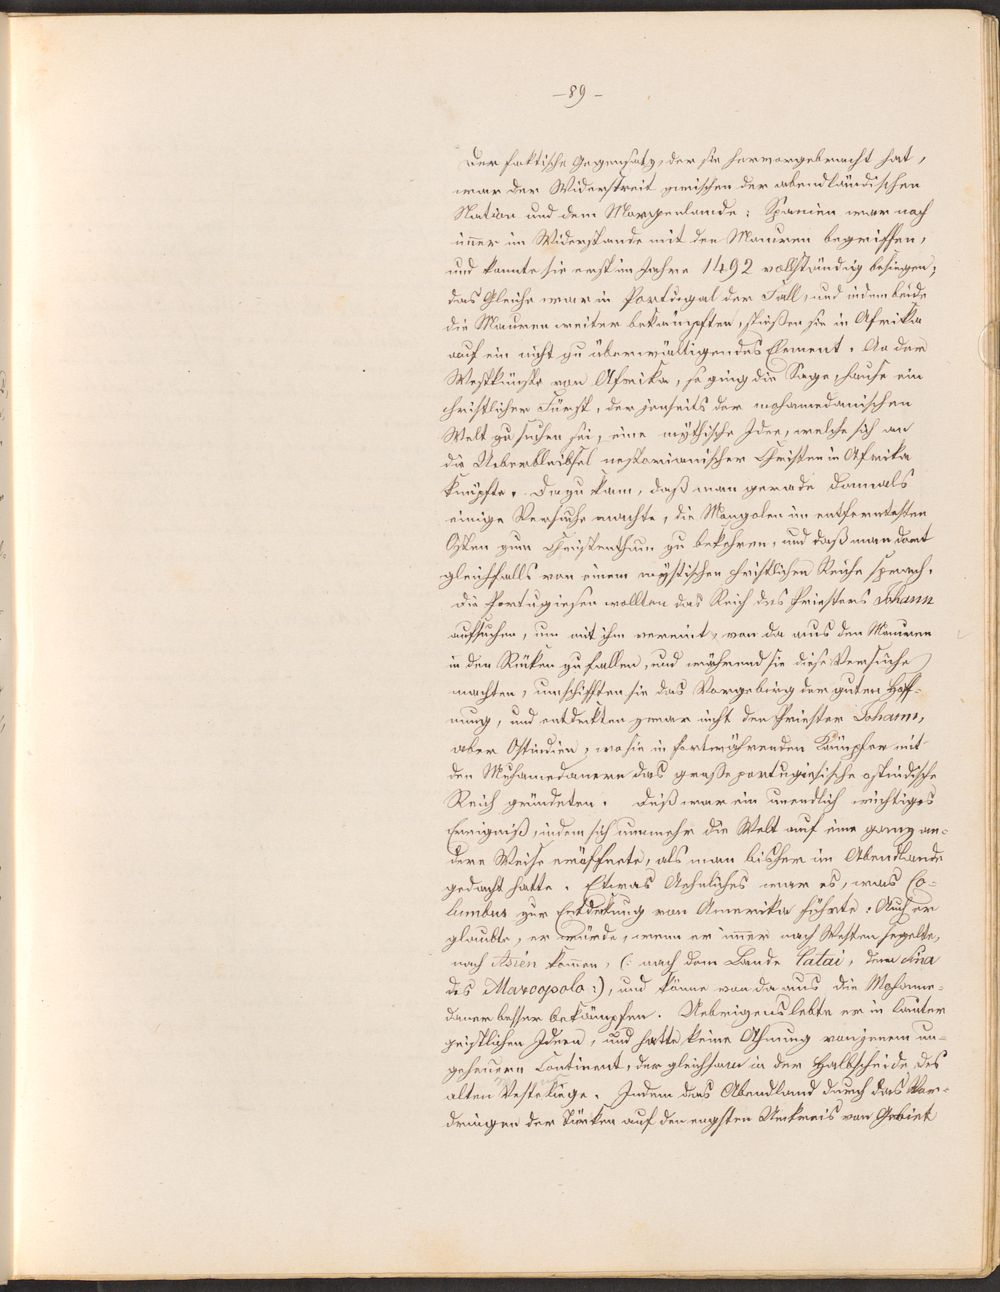 – 89 –
Der faktische Gegensatz, der sie hervorgebracht hat,
war der Widerstreit zwischen der abendländischen
Nation und dem Morgenlande: Spanien war noch
im̄er im Widerstande mit den Mauren begriffen,
und konnte sie erst im Jahre 1492 vollständig besiegen;
das Gleiche war in Portugal der Fall, und indem beide
die Mauren weiter bekämpften, stießen sie in Afrika
auf ein nicht zu überwältigendes Element. An der
Westküste von Afrika, so ging die Sage, hause ein
christlicher Fürst, der jenseits der mohamedanischen
Welt zu suchen sei, eine mythische Idee, welche sich an
die Ueberbleibsel nestorianischer Christen in Afrika
knüpfte. Dazu kam, daß man gerade damals
einige Versuche machte, die Mongolen im entferntesten
Osten zum Christenthum zu bekehren, und daß man dort
gleichfalls von einem mystischen christlichen Reiche sprach.
Die Portugiesen wollten das Reich des Priesters Johann
aufsuchen, um mit ihm vereint, von da aus den Mauren
in den Rüken zu fallen, und während sie diese Versuche
machten, umschifften sie das Vorgebirg der guten Hoff-
nung, und entdekten zwar nicht den Priester Johann,
aber Ostindien, wo sie in fortwährenden Kämpfen mit
den Muhamedanern das große portugiesische ostindische
Reich gründeten. Dieß war ein unendlich wichtiges
Ereigniß, indem sich nunmehr die Welt auf eine ganz an-
dere Weise eröffnete, als man bisher im Abendlande
gedacht hatte. Etwas Aehnliches war es, was Co-
lumbus zur Entdekung von Amerika führte. Auch er
glaubte, er würde, wenn er im̄er nach Westen segelte,
nach Asien kom̄en, (: nach dem Lande Catai, dem Sina
des Marcopolo :), und könne von da aus die Mohame-
daner besser bekämpfen. Uebrigens lebte er in lauter
geistlichen Ideen, und hatte keine Ahnung von jenem un-
geheuern Continent, der gleichsam in der Halbscheide des
alten Veste liege. Indem das Abendland durch das Vor-
dringen der Türken auf den engsten Umkreis von Gebiet